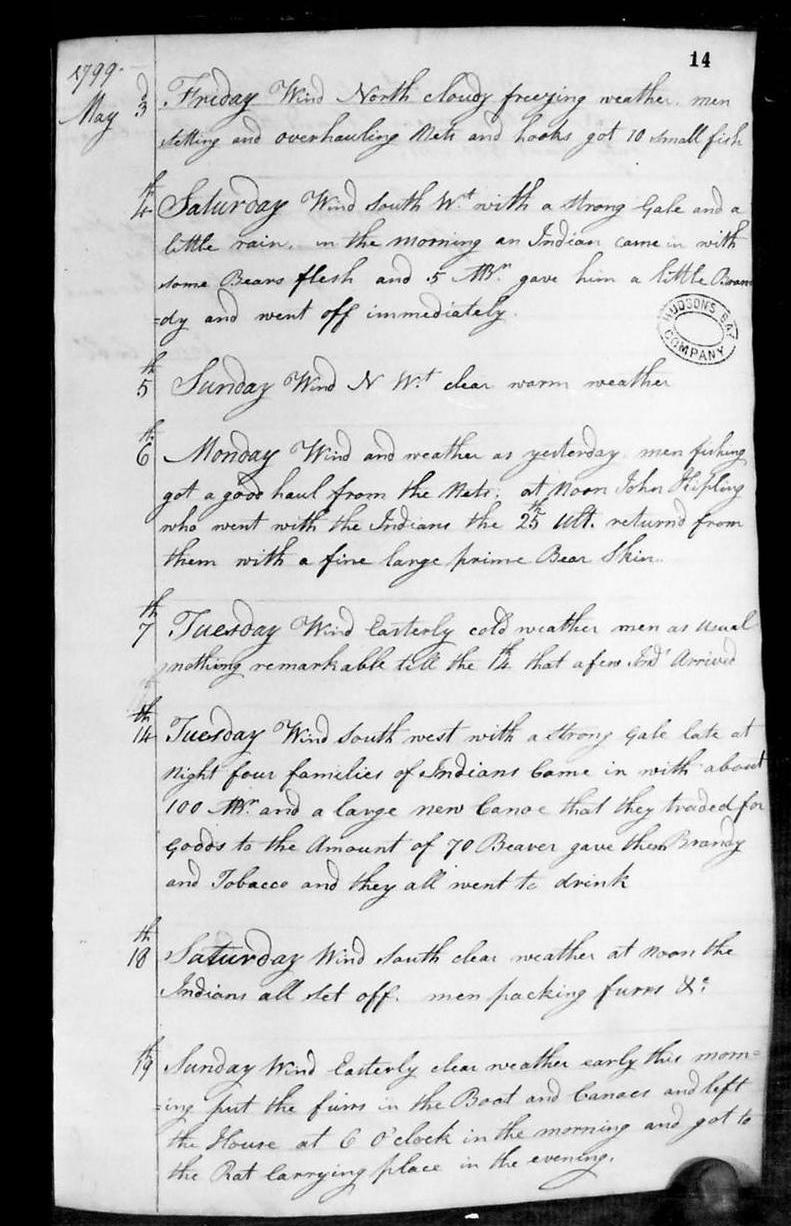 14
1799
May 3d Friday Wind North cloudy freezing weather. men
setting and overhauling Nets and hooks got 10 small fish
4th Saturday Wind South Wt with a strong Gale and a
little rain. in the morning an Indian came in with
some Bears flesh and 5 MBr. gave him a little Bran
=dy and went off immediately.
HUDSONS BAY
COMPANY
5th Sunday Wind N Wt clear warm weather
6th Monday Wind and weather as yesterday. men fishing
got a good haul from the Nets. at Noon John Kipling
who went with the Indians the 25th Ult. returnd from
them with a fine large prime Bear Skin.
7th Tuesday Wind Easterly cold weather men as usual
nothing remarkable till the 14th that a few Inds Arrived
14th Tuesday Wind South west with a strong Gale late at
Night four families of Indians Came in with about
100 MBr. and a large new Canoe that they traded for
Goods to the Amount of 70 Beaver gave them Brandy
and Tobacco and they all went to drink
18th Saturday Wind South clear weather at Noon the
Indians all set off. men packing furrs &c
19th Sunday Wind Easterly clear weather early this morn=
=ing put the furrs in the Boat and Canoes and left
the House at 6 O'clock in the morning and got to
the Rat Carrying place in the evening.